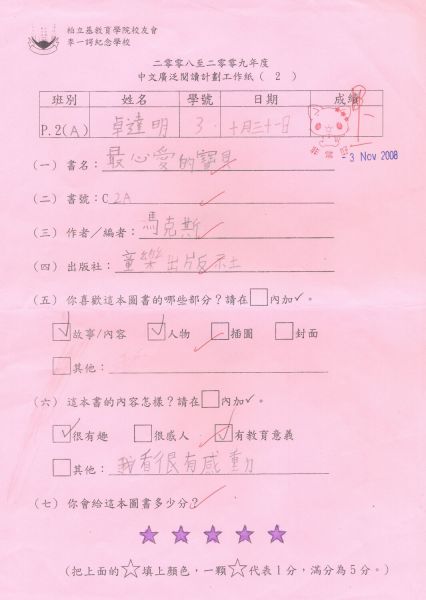 柏立基教育學院校友會
李一諤紀念學校
二零零八至二零零九年度
中文廣泛閱讀計劃工作紙（2）
班別 姓名 學號 日期 成績
P.2(A) 卓達明 3 十月三十一日
- 3 Nov 2008
（一）書名：最心愛的寶貝
（二）書號：C 2A
（三）作者／編者：馬克斯
（四）出版社：童樂出版社
（五）你喜歡這本圖書的哪些部分？請在□內加✓。
☑故事/內容 ☑人物 □插圖 □封面
□其他：
（六）這本書的內容怎樣？請在□內加✓。
☑很有趣 □很感人 ☑有教育意義
□其他：我看很有感動
（七）你會給這本圖書多少分？
★ ★ ★ ★ ★
（把上面的☆填上顏色，一顆☆代表1分，滿分為5分。）